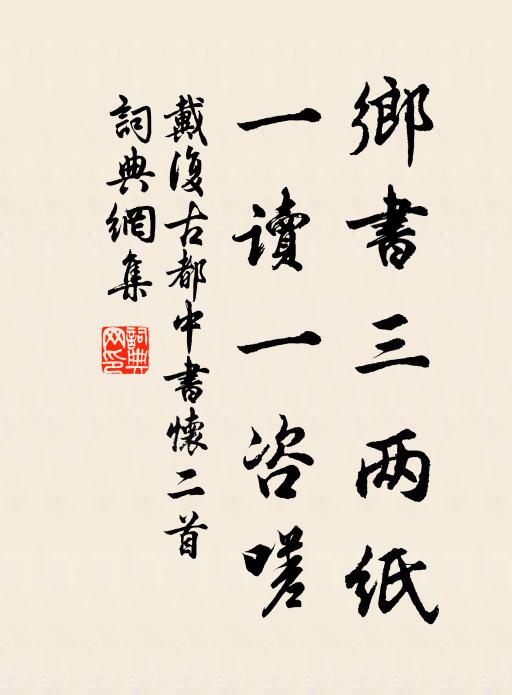 鄉書三两紙
一讀一咨嗟
戴復古都中書懷二首
詞典網集
詞典网印